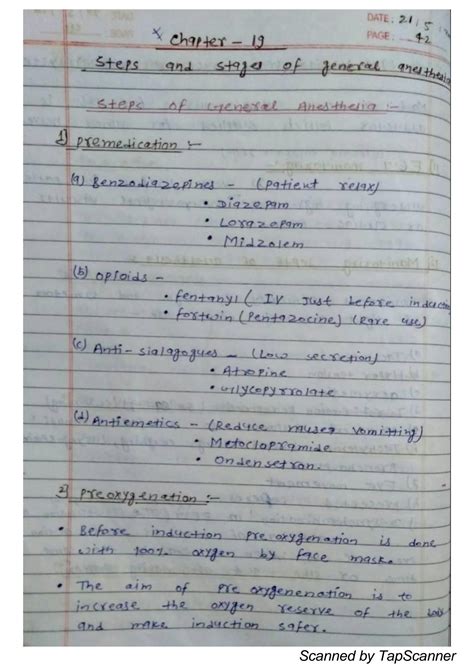 DATE: 21/5
PAGE: 42
Chapter - 19
Steps and stages of general anesthesia
Steps of General Anesthesia :-
1) premedication :-
(a) Benzodiazepines - (patient relax)
• Diazepam
• Lorazepam
• Midzolem
(b) opioids -
• fentanyl ( IV Just before induction
• fortwin (pentazocine) (Rare use)
(c) Anti-sialagogues - (Low secretion)
• Atropine
• Glycopyrrolate
(d) Antiemetics - (Reduce vomitting)
• Metoclopramide
• Ondensetron.
2) preoxygenation :-
• Before induction pre oxygenation is done
with 100% oxygen by face mask.
• The aim of pre oxygenenation is to
increase the oxygen reserve of the
and make induction safer.
Scanned by TapScanner